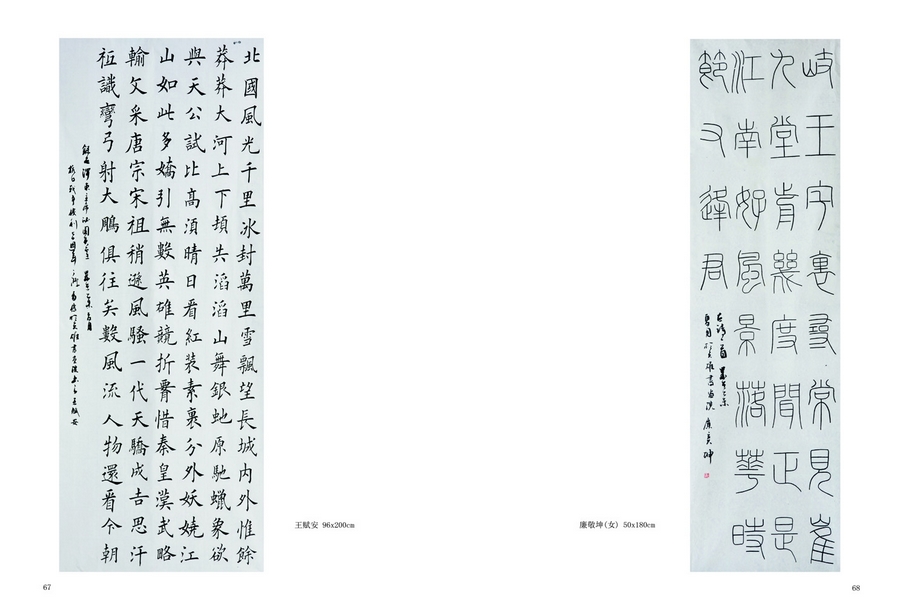 北國風光千里冰封萬里雪飄望長城內外惟餘
莽莽大河上下頓失滔滔山舞銀虵原馳蠟象欲
與天公試比高須晴日看紅裝素裹分外妖嬈江
山如此多嬌引無數英雄競折腰惜秦皇漢武略
輸文采唐宗宋祖稍遜風騷一代天驕成吉思汗
祗識彎弓射大鵰俱往矣數風流人物還看今朝
王赋安 96x200cm
67
岐王宅裏尋常見崔
九堂前幾度聞正是
江南好風景落華時
節又逢君
廉敬坤(女) 50x180cm
68